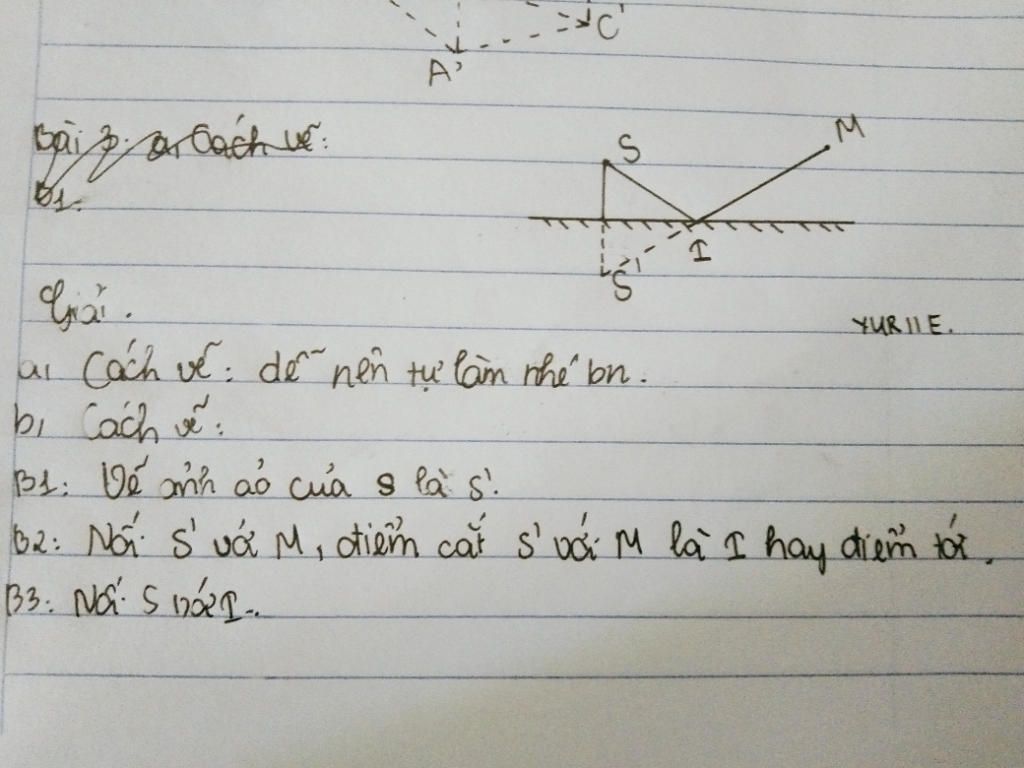 C'
A'
Bài 3: a, Cách vẽ:
B1:
S
M
I
S'
Giải.
YURIIE.
a, Cách vẽ: dễ nên tự làm nhé bn.
b, Cách vẽ:
B1: Vẽ ảnh ảo của S là S'.
B2: Nối S' với M, điểm cắt S' với M là I hay điểm tới.
B3: Nối S với I.